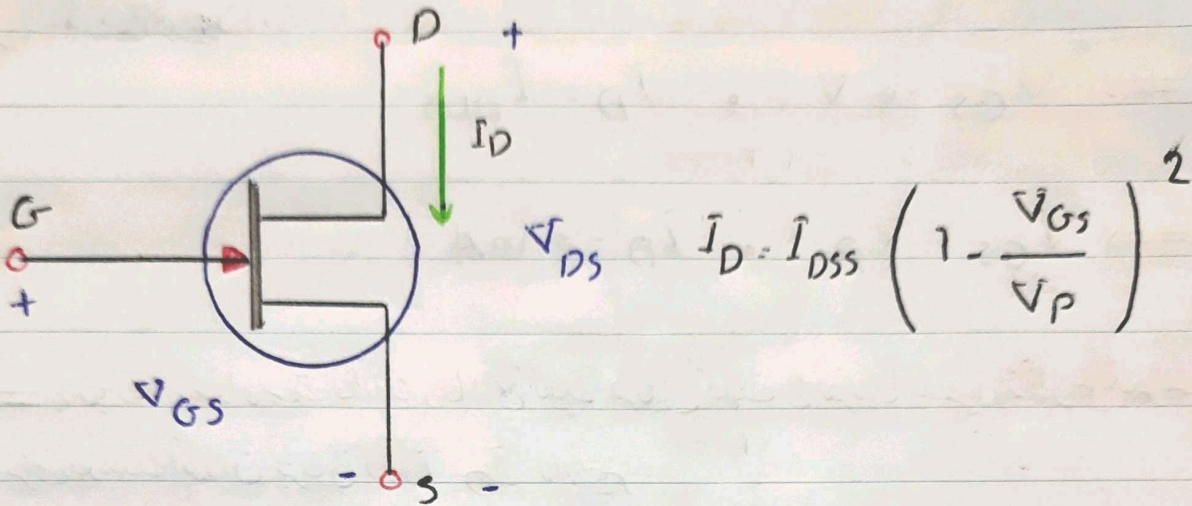 D +
I_D
G
+
V_DS I_D = I_DSS (1 - V_GS / V_P)^2
V_GS
- S -